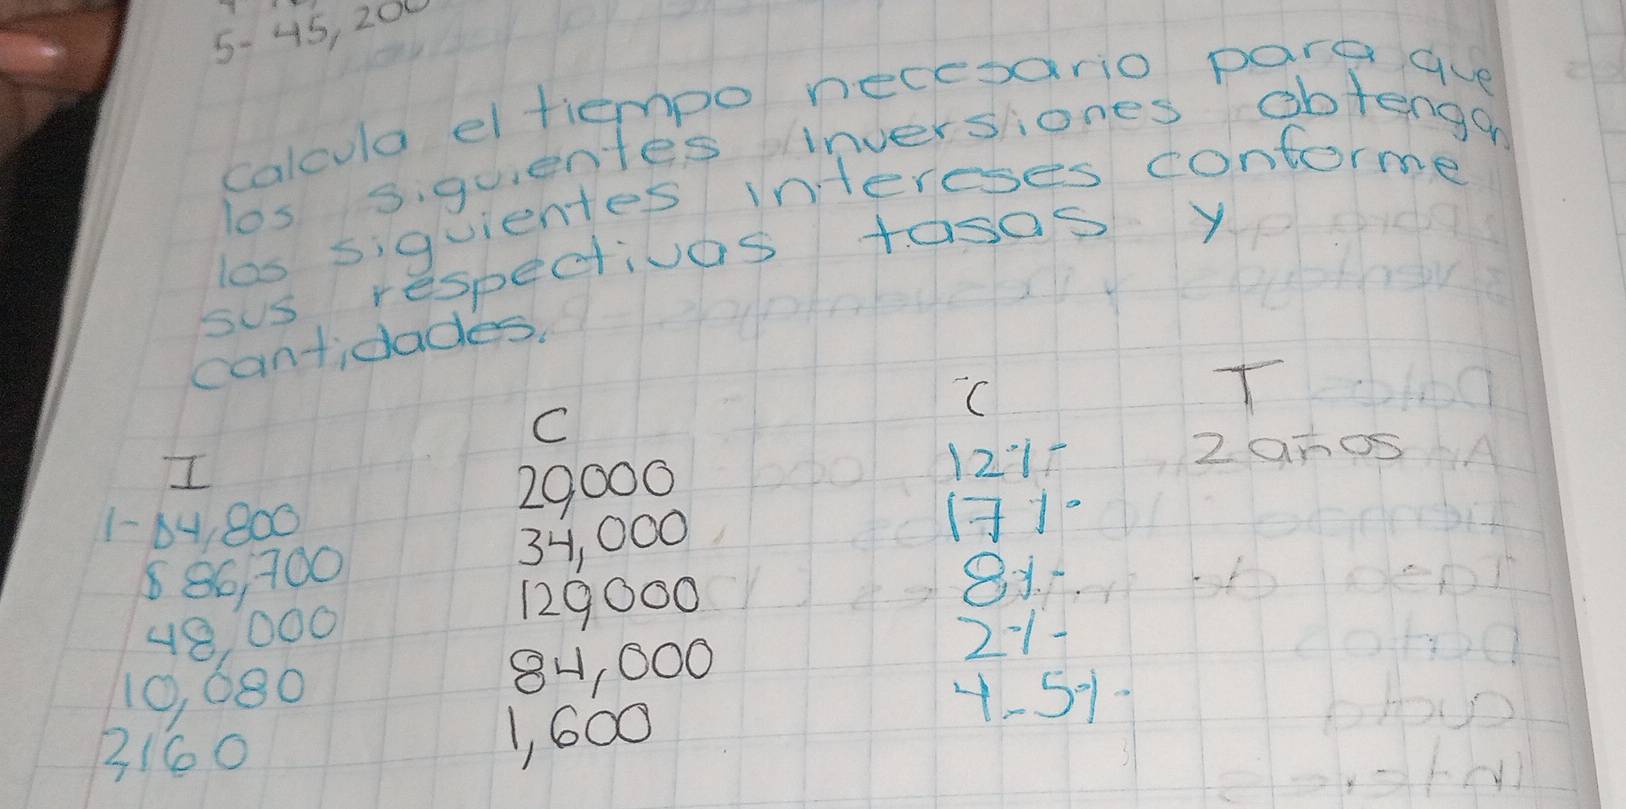 5- 45,200
calcula el tiempo necesario para que
los siguientes inversiones obtengan
los siguientes intereses conforme
sus respectivas tasas y
cantidades.
I C i T
1- $4,800 20,000 12% 2 años
$ 86,700 34,000 17%
48,000 120000 8%
10,080 84,000 2%
2,160 1,600 4.5%